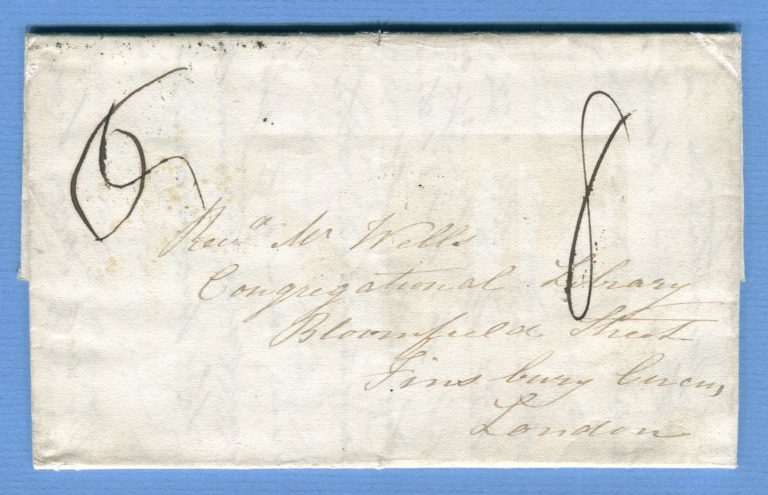 6
8
Revd Mr Wells
Congregational Library
Bloomfield Street
Finsbury Circus,
London